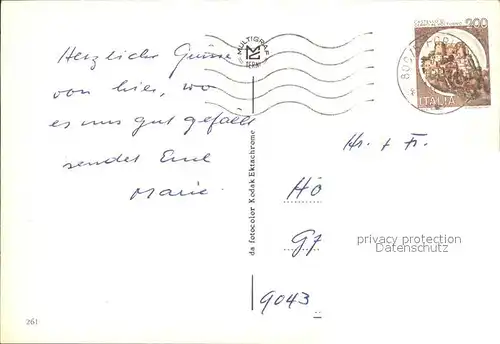 Herzliche Grüsse
von hier, wo
es uns gut gefällt
sendet Eine
Marie
MULTIGRAF
TERNI
da fotocolor Kodak Ektachrome
200
ITALIA
Hr. + Fr.
Hö
G7
privacy protection
Datenschutz
9043
261